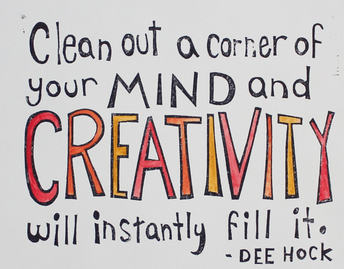 Clean out a corner of
your MIND and
CREATIVITY
will instantly fill it.
- DEE HOCK